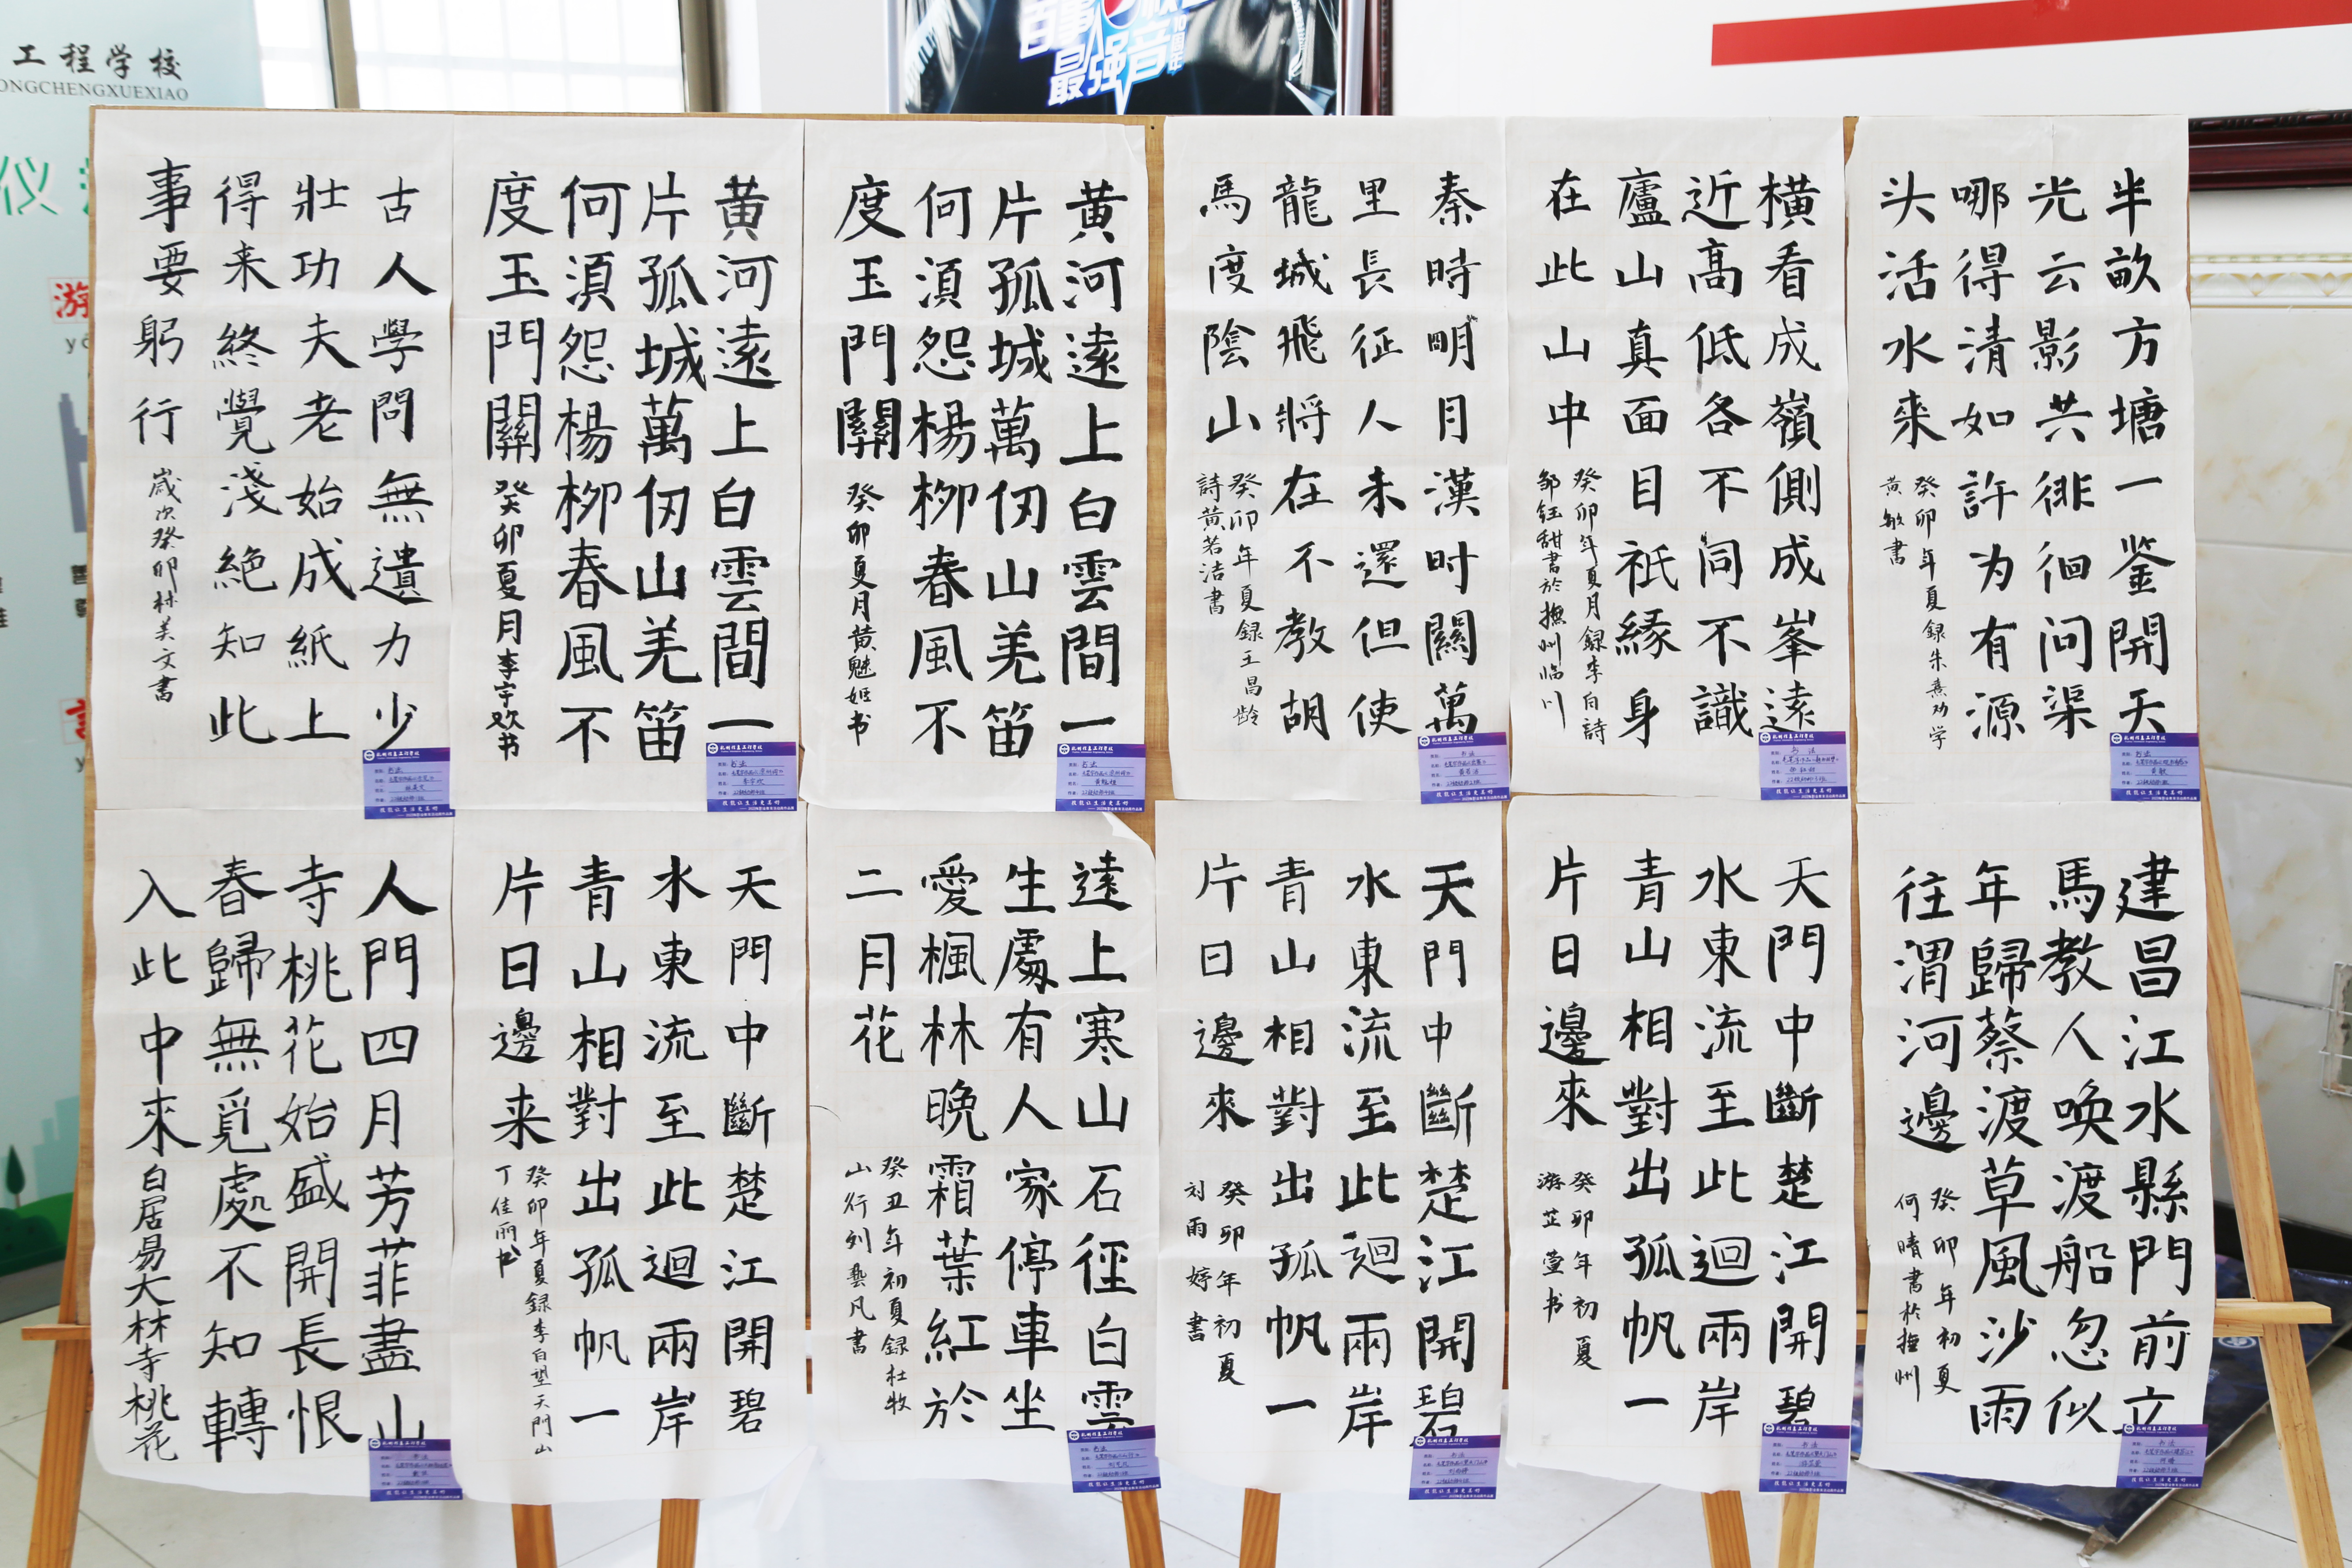 工程学校
ONGCHENGXUEXIAO
百事
最强音
仪
游
古人學問無遺力少
壯功夫老始成紙上
得来終覺淺絶知此
事要躬行
歲次癸卯林美文書
黄河遠上白雲間一
片孤城萬仞山羌笛
何須怨楊栁春風不
度玉門關
癸卯夏月李宇欢书
黄河遠上白雲間一
片孤城萬仞山羌笛
何須怨楊栁春風不
度玉門關
癸卯夏月黄魅姬书
秦時明月漢时關萬
里長征人未還但使
龍城飛將在不教胡
馬度陰山
癸卯年夏録王昌龄
詩黄若洁書
橫看成嶺側成峯遠
近髙低各不同不識
廬山真面目祇緣身
在此山中
癸卯年夏月録李白詩
邹鈺甜書於撫州临川
半畝方塘一鉴開天
光云影共徘徊问渠
哪得清如許为有源
头活水來
癸卯年夏録朱熹劝学
黄敏書
人門四月芳菲盡山
寺桃花始盛開長恨
春歸無覓處不知轉
入此中來
白居易大林寺桃花
天門中斷楚江開碧
水東流至此迴兩岸
青山相對出孤帆一
片日邊来
癸卯年夏録李白望天門山
丁佳丽书
遠上寒山石徑白雲
生處有人家停車坐
愛楓林晚霜葉紅於
二月花
癸丑年初夏録杜牧
山行刘艷凡書
天門中斷楚江開碧
水東流至此迴兩岸
青山相對出孤帆一
片日邊來
癸卯年初夏
刘雨婷書
天門中斷楚江開碧
水東流至此迴兩岸
青山相對出孤帆一
片日邊來
癸卯年初夏
游芷萱书
建昌江水縣門前立
馬教人喚渡船忽似
年歸蔡渡草風沙雨
往渭河邊
癸卯年初夏
何晴書於撫州